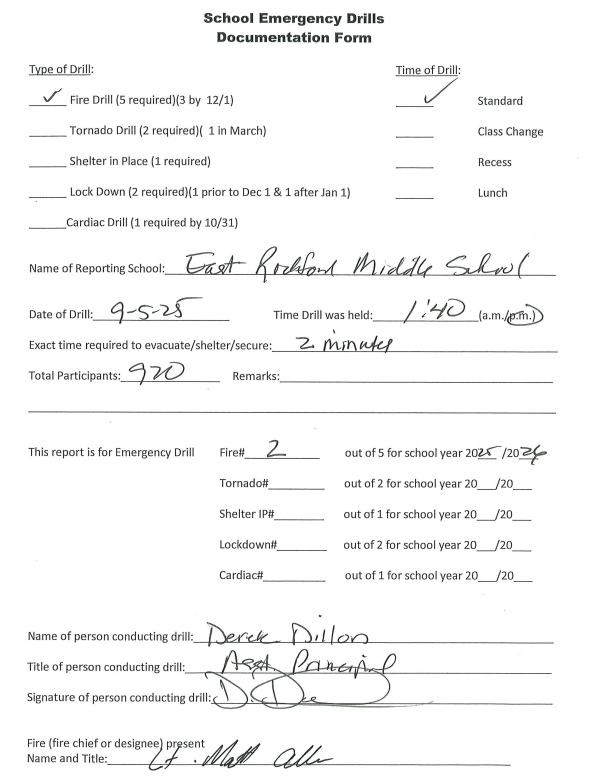 School Emergency Drills
Documentation Form
Type of Drill: Time of Drill:
✓ Fire Drill (5 required)(3 by 12/1) ✓ Standard
______ Tornado Drill (2 required)( 1 in March) ______ Class Change
______ Shelter in Place (1 required) ______ Recess
______ Lock Down (2 required)(1 prior to Dec 1 & 1 after Jan 1) ______ Lunch
______Cardiac Drill (1 required by 10/31)
Name of Reporting School: East Rockford Middle School
Date of Drill: 9-5-25 Time Drill was held: 1:40 (a.m./p.m.)
Exact time required to evacuate/shelter/secure: 2 minutes
Total Participants: 920 Remarks:
This report is for Emergency Drill Fire# 2 out of 5 for school year 2025/2026
Tornado#________ out of 2 for school year 20___/20___
Shelter IP#________ out of 1 for school year 20___/20___
Lockdown#________ out of 2 for school year 20___/20___
Cardiac#________ out of 1 for school year 20___/20___
Name of person conducting drill: Derek Dillon
Title of person conducting drill: Asst Principal
Signature of person conducting drill: D. D
Fire (fire chief or designee) present
Name and Title: Lt. Matt